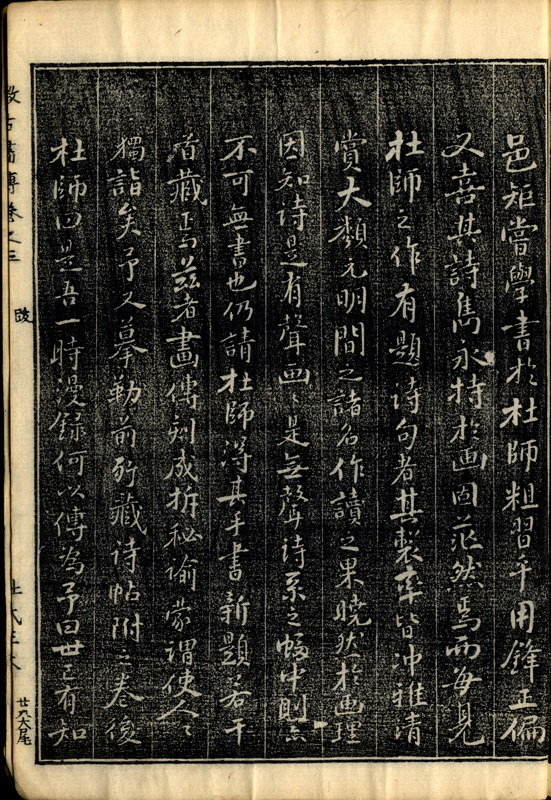 邑矩嘗學書於杜師粗習乎用鋒正偏
又喜其詩雋永特於画固茫然焉而每見
杜師之作有題诗句者其製率皆冲雅清
賞大類元明間之諸名作讀之果曉狀於画理
因知诗是有聲画〻是無聲诗系之幅中則亦
不可無書也仍請杜師得其手書新題若干
首藏焉兹者畫傳剞成拆秘谕蒙謂使人〻
獨詣矣予又摹勒前所藏诗帖附之卷後
杜師曰是吾一時漫録何以傳為予曰世已有知
畫傳卷之三
跋
廿九大尾